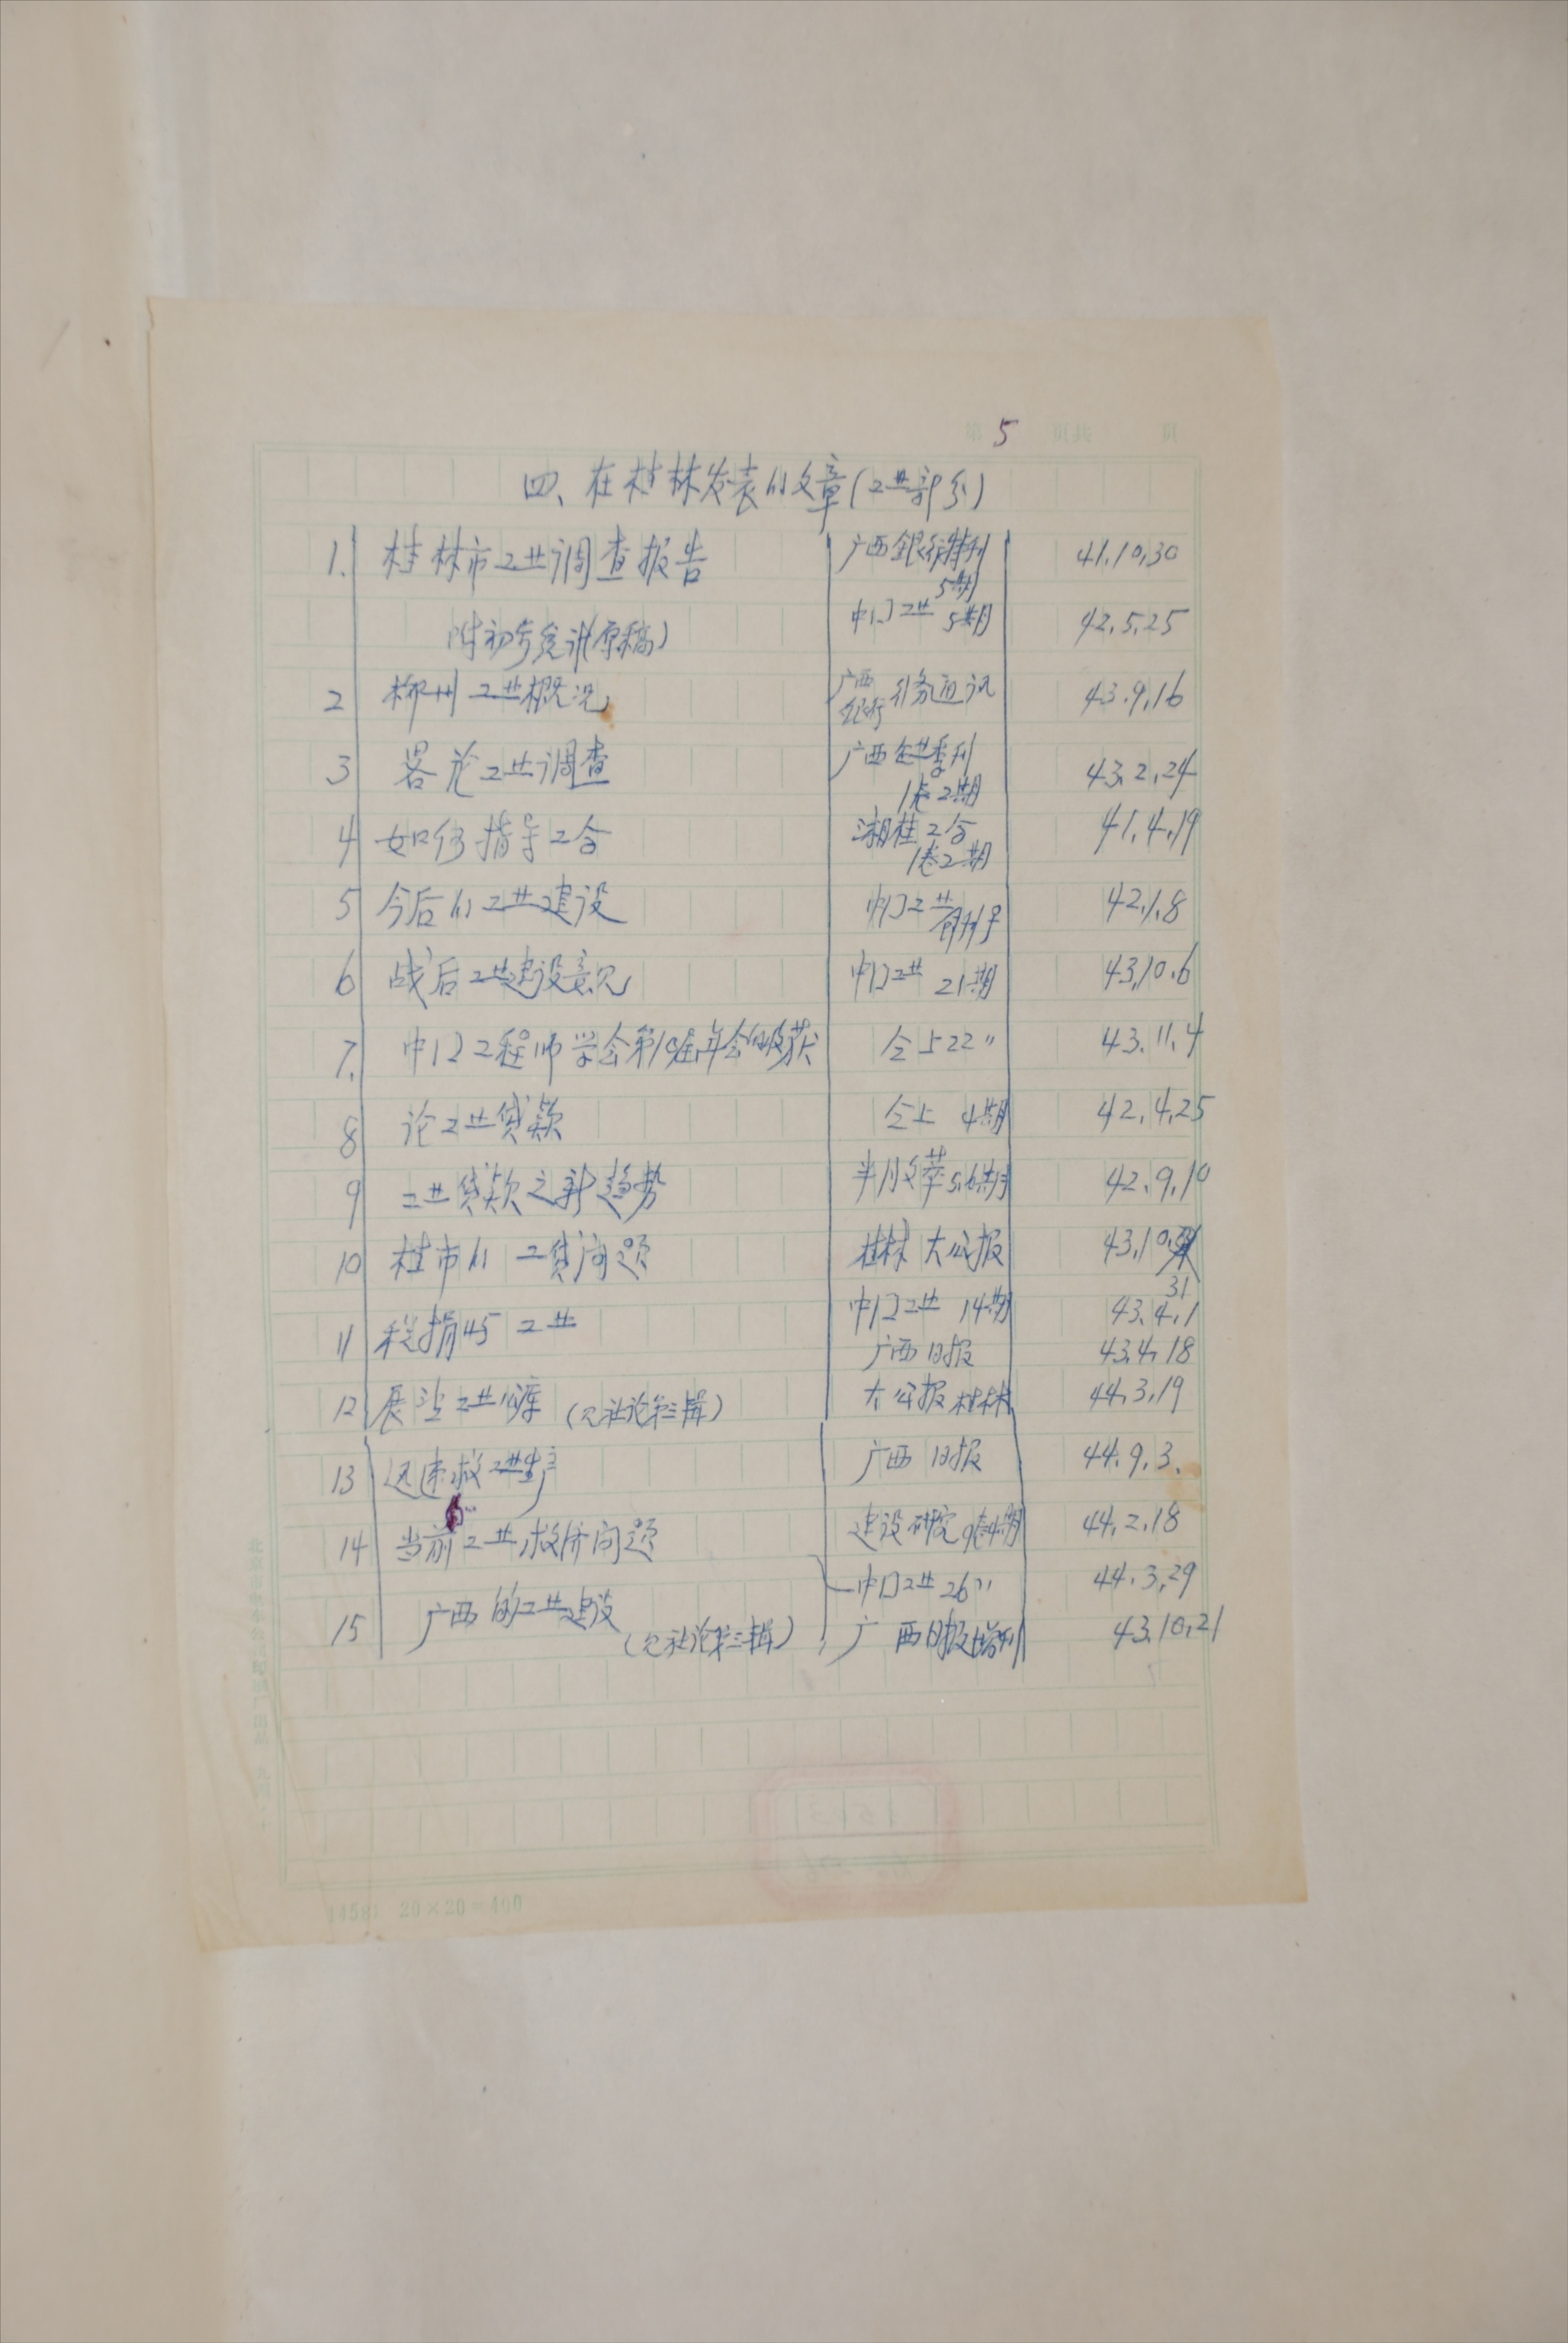 第 5 页共 页
四、在桂林发表的文章(工业部分)
1. 桂林市工业调查报告 广西銀行特刊 5期 41.10.30
附初步统计(原稿) 中囗工业 5期 42.5.25
2 柳州工业概况 广西银行 行务通讯 43.9.16
3 畧论工业调查 广西企业季刊 1卷2期 43.2.24
4 如何指导工合 湘桂工合 1卷2期 41.4.19
5 今后的工业建设 中囗工业 创刊号 42.1.8
6 战后工业建设意见 中囗工业 21期 43.10.6
7. 中囗工程师学会第10届年会的收获 仝上22〃 43.11.4
8 论工业贷款 仝上 4期 42.4.25
9 工业贷款之新趋势 半月文萃5.6期 42.9.10
10 桂市的工贷问题 桂林大公报 43.10.31
11 税捐与工业 中囗工业 14期 43.4.1
广西日报 43.4.18
12 展望工业 (见社论第三辑) 大公报桂林 44.3.19
13 迅速救工业生产 广西日报 44.9.3.
14 当前的工业救济问题 建设研究9卷4期 44.2.18
中囗工业26〃 44.3.29
15 广西的工业建设 (见社论第三辑) 广西日报增刊 43.10.21
(1458) 20×20=400